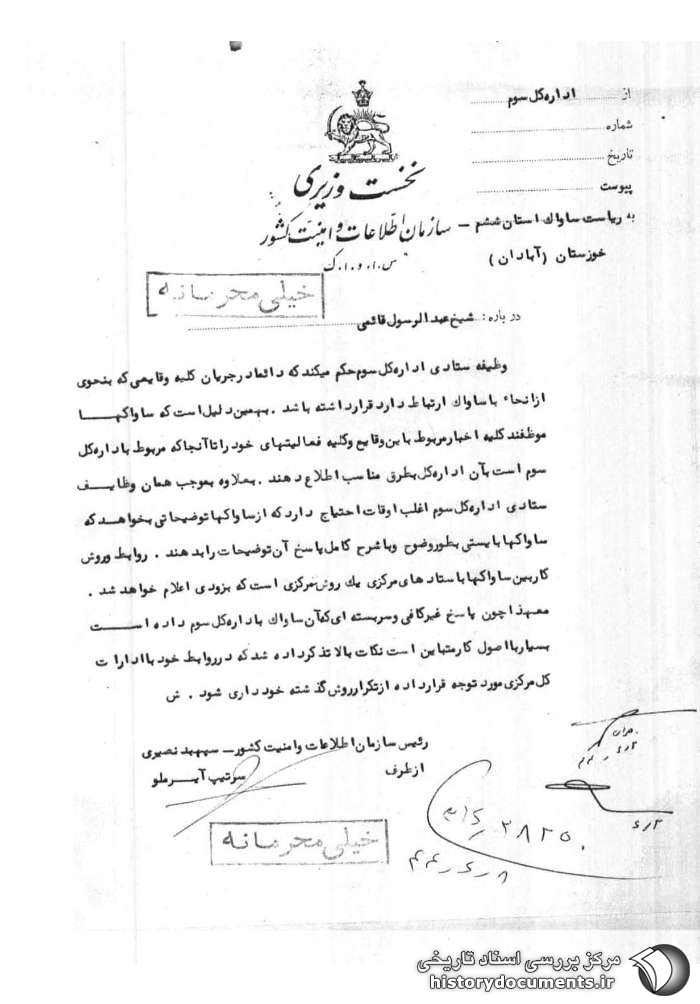 از اداره کل سوم
شماره
تاریخ
پیوست
نخست وزیری
سازمان اطلاعات و امنیت کشور
س.ا.و.ا.ک
به ریاست ساواك استان ششم –
خوزستان (آبادان)
خیلی محرمانه
درباره: شیخ عبدالرسول قائمی
وظیفه ستادی اداره کل سوم حکم میکند که دائماً در جریان کلیه وقایعی که بنحوی
از انحاء با ساواك ارتباط دارد قرار داشته باشد . بهمین دلیل است که ساواکهـــا
موظفند کلیه اخبار مربوط با بن وقایع وکلیه فعالیتهای خود را تا آنجا که مربوط باداره کل
سوم است بآن اداره کل بطرق مناسب اطلاع دهند . بعلاوه بموجب همان وظایـــف
ستادی اداره کل سوم اغلب اوقات احتیاج دارد که از ساواکها توضیحاتی بخواهد که
ساواکها بایستی بطور وضوح وبا شرح کامل پاسخ آن توضیحات را بدهند . روابط وروش
کاربین ساواکها با ستادهای مرکزی يك روش مرکزی است که بزودی اعلام خواهد شد .
معهذا چون پاسخ غیرکافی وسربسته ای که آن ساواك باداره کل سوم داده اســـت
بسیار با اصول کار متباین است نکات بالا تذکر داده شد که در روابط خود با ادارات
کل مرکزی مورد توجه قرار داده از تکرار روش گذشته خودداری شود . ش
رئیس سازمان اطلاعات وامنیت کشور – سپهبد نصیری
از طرف سرتیپ آیــرملو
خیلی محرمانه
۳۸۲۵۰
۴۴٫۶٫۸
۲٫۶
مرکز بررسی اسناد تاریخی
historydocuments.ir